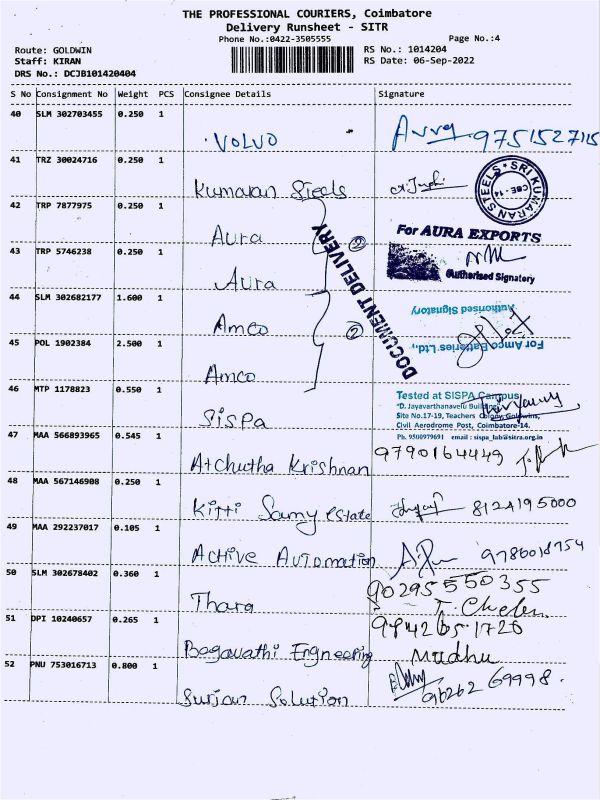 THE PROFESSIONAL COURIERS, Coimbatore
Delivery Runsheet - SITR
Phone No.:0422-3505555 Page No.:4
Route: GOLDWIN RS No.: 1014204
Staff: KIRAN RS Date: 06-Sep-2022
DRS No.: DCJB101420404
S No Consignment No Weight PCS Consignee Details Signature
40 SLM 302703455 0.250 1
VOLVO 9751527115
41 TRZ 30024716 0.250 1
Kumaran Steels
SRI KUMARAN STEELS CBE-14
42 TRP 7877975 0.250 1
Aura
For AURA EXPORTS
43 TRP 5746238 0.250 1
Authorised Signatory
Aura
DOCUMENT DELIVERY
44 SLM 302682177 1.600 1
Amco
Authorised Signatory
For Amco Batteries Ltd.,
45 POL 1902384 2.500 1
Amco
46 MTP 1178823 0.550 1
Tested at SISPA Campus
"D. Jayavarthanavelu Building"
Site No.17-19, Teachers Colony, Goldwins,
Civil Aerodrome Post, Coimbatore-14.
Ph. 9500979691 email : sispa_lab@sitra.org.in
Sispa
47 MAA 566893965 0.545 1
Atchutha Krishnan 9790164449
48 MAA 567146908 0.250 1
Kitti Samy estate 8124195000
49 MAA 292237017 0.105 1
Active Automation
50 SLM 302678402 0.360 1
Thara
51 DPI 10240657 0.265 1
Bagavathi Engneering Madhu
52 PNU 753016713 0.800 1
Surjan Solution 96262 69998.